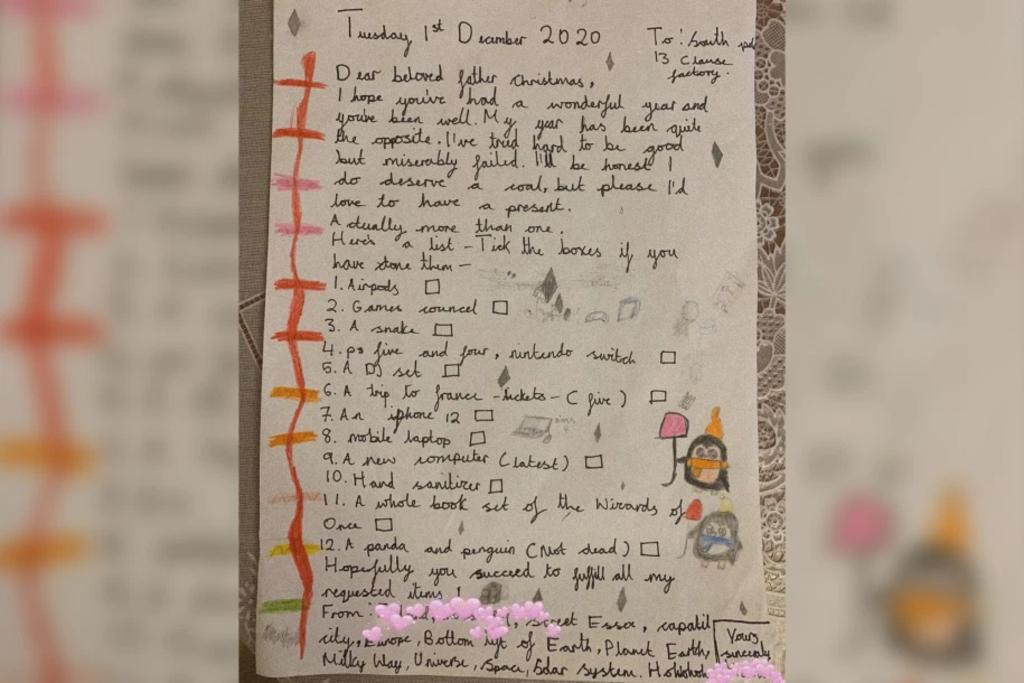 Tuesday 1st December 2020
To: South
13 Clause
factory.
Dear beloved father christmas,
I hope you've had a wonderful year and
you've been well. My year has been quite
the opposite. I've tried hard to be good
but miserably failed. I'll be honest I
do deserve a coal, but please I'd
love to have a present.
Actually more than one.
Here's a list - Tick the boxes if you
have done them -
1. Airpods
2. Games councel
3. A snake
4. ps five and four, nintendo switch
5. A DJ set
6. A trip to france - tickets - ( five )
7. An iphone 12
8. mobile laptop
9. A new computer (latest)
10. Hand sanitizer
11. A whole book set of the Wizards of
Once
12. A panda and penguin (Not dead)
Hopefully you succeed to fulfill all my
requested items!
From: street Essex, capatil
city, Europe, Bottom left of Earth, Planet Earth,
Milky Way, Universe, Space, Solar system. Hohohoh
Yours
sincerely